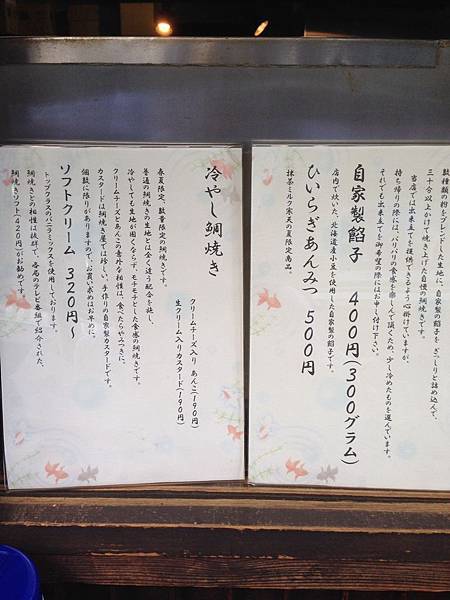 数種類の粉をブレンドした生地に、自家製の餡子をぎっしりと詰め込んで、
三十分以上かけて焼き上げた自慢の鯛焼きです。
当店では出来立てを提供できるよう心掛けていますが、
持ち帰りの際には、パリパリの食感を楽しんで頂くため、少し冷めたものを選んでいます。
それでも出来立てを御希望の際にはお申し付け下さい。
自家製餡子 400円(300グラム)
店内で炊いた、北海道産小豆を使用した自家製の餡子です。
ひいらぎあんみつ 500円
抹茶ミルク寒天の夏限定商品。
冷やし鯛焼き
クリームチーズ入り あんこ(190円)
生クリーム入りカスタード(190円)
春夏限定、数量限定の鯛焼きです。
普通の鯛焼きの生地とは全く違う配合を施し、
冷やしても生地が固くならず、モチモチとした食感の鯛焼きです。
クリームチーズとあんこの意外な相性は、食べたらやみつきに。
カスタードは鯛焼き屋では珍しい、手作りの自家製カスタードです。
個数に限りがありますので、お買い求めはお早めに。
ソフトクリーム 320円〜
トップクラスのバニラミックスを使用しております。
鯛焼きとの相性は抜群で、各局のテレビ番組で紹介された、
鯛焼きソフト(420円)がお勧めです。